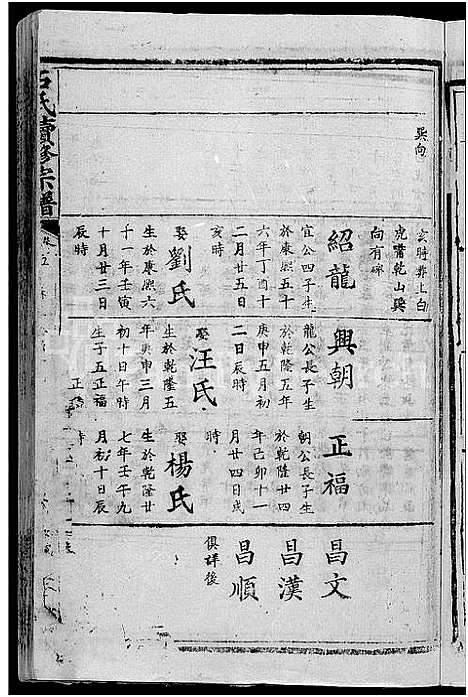 石氏續修宗譜
巽向
亥時葬上白
虎嘴乾山巽
向有碑
紹龍
宣公四子生
於康熙五十
六年丁酉十
二月廿五日
亥時
娶劉氏
生於康熙六
十一年壬寅
十月廿三日
辰時
興朝
龍公長子生
於乾隆五年
庚申五月初
二日辰時
娶汪氏
生於乾隆五
年庚申三月
初十日午時
生子五正福
正福
朝公長子生
於乾隆廿四
年己卯十一
月廿四日戌
時
娶楊氏
生於乾隆廿
七年壬午九
月初十日辰
時
昌文
昌漢
昌順
俱詳後